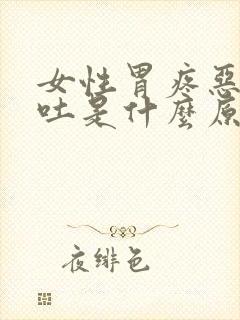 女性胃疼惡
吐是什麼原
夜緋色